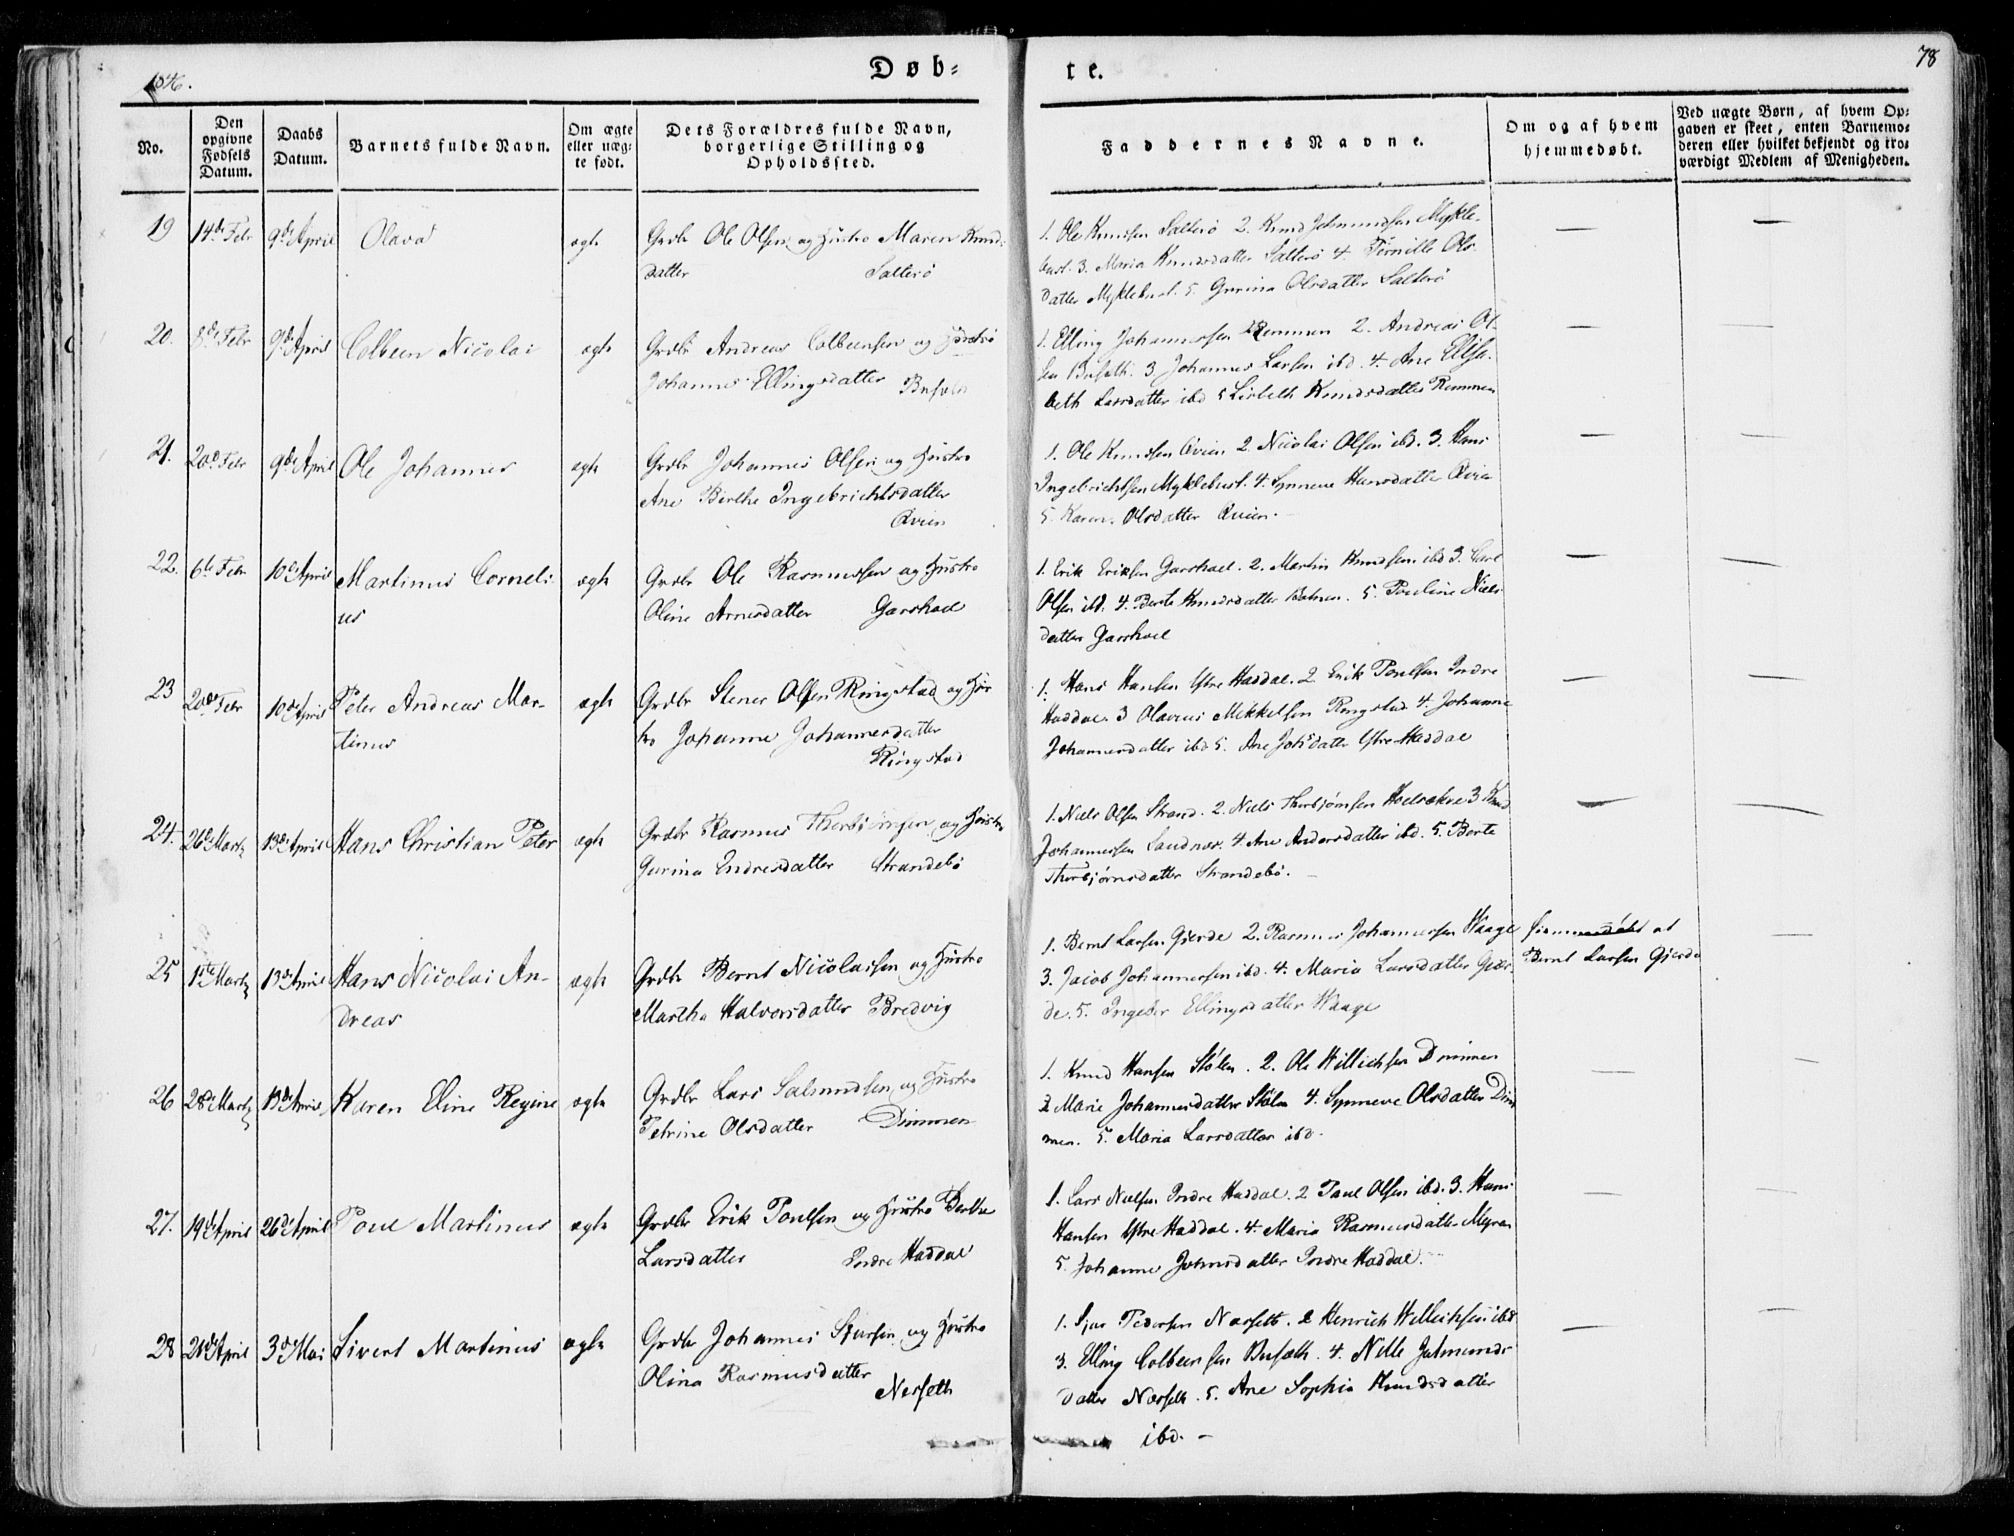 1846.
Døb=
te.
78
No.
Den opgivne Fødsels Datum.
Daabs Datum.
Barnets fulde Navn.
Om ægte eller uæg= te født.
Dets Forældres fulde Navn, borgerlige Stilling og Opholdssted.
Faddernes Navne.
Om og af hvem hjemmedøbt.
Ved uægte Børn, af hvem Op= gaven er skeet, enten Barnemo= deren eller hvilket bekjendt og tro= værdigt Medlem af Menigheden.
19 14de Febr 9de April Olava ægte Grdbr Ole Olsen og Hustro Maren Knuds
datter Salterö
1. Ole Knudsen Salterö 2. Knud Johnsen Mykle-
bust. 3. Maria Knudsdatter Salterö 4. Pernille Ols
datter Myklebust. 5. Gurina Olsdatter Salterö
—
—
20. 8de Febr 9de April Colbeen Nicolai ægte Grdbr Andreas Colbeensen og Hustro
Johanne Ellingsdatter Busæth
1. Elling Johannessen Remmen 2. Andreas Ol-
sen Busæth. 3 Johannes Larsen ibd. 4. Ane Elisa-
beth Larsdatter ibd 5 Lisbeth Knudsdatter Remmen
—
—
21. 20de Febr 9de April Ole Johannes ægte Grdbr Johannes Olsen og Hustro
Ane Birthe Ingebrichtsdatter
Qvien
1. Ole Knudsen Qvien 2. Nicolai Olsen ibd. 3. Hans
Ingebrichtsen Myklebust. 4. Synneve Hansdatter Qvien
5. Karen Olsdatter Qvien.
—
—
22. 6te Febr 10de April Martinus Corneli- ægte Grdbr Ole Rasmussen og Hustro
us Oline Arnesdatter Garshoel
1. Erik Eriksen Garshoel. 2. Martin Knudsen ibd 3. Carl
Olsen ibd. 4. Berte Knudsdatter 5. Pouline Niels
datter Garshoel
—
—
23 20de Febr 10de April Peter Andreas Mar- ægte Grdbr Stener Olsen Ringstad og Hus
tinus tro Johanne Johannesdatter
Ringstad
1. Hans Hansen Ytre Haddal. 2 Erik Poulsen Indre
Haddal. 3 Olaus Mikkelsen Ringstad 4. Johanne
Johannesdatter ibd 5. Ane Johsdatter Ytre Haddal
—
—
24. 26de Marts 13de April Hans Christian Peter ægte Grdbr Rasmus Thorbiörnsen og Hustro
Gurina Endresdatter Strandebö
1. Niels Olsen Strand. 2. Niels Thorbjörnsen 3 Knud
Johannessen Sandnæs. 4. Ane Andersdatter ibd. 5. Berte
Thorbjörnsdatter Strandebö.
—
—
25 1ste Marts 13de April Hans Nicolai An- ægte Grdbr Bernt Nicolaisen og Hustro
dreas Martha Halvorsdatter Bredvig
1. Bernt Larsen Gjerde 2. Rasmus Johannessen Waage
3. Jacob Johannessen ibd. 4. Maria Larsdatter Gjær-
de. 5. Ingeber Ellingsdatter Waage
hiemmedöbt af
Bernt Larsen Gjerde
—
26 28de Marts 13de April Karen Eline Regine ægte Grdbr Lars Salmundsen og Hustro
Petrine Olsdatter Dimmen
1. Knud Hansen Stölen. 2. Ole Willichsen Dimmen
3 Marie Johannesdatter Stölen 4. Synneve Olsdatter Dim
men. 5. Maria Larsdatter ibd.
—
—
27. 19de April 26de April Poul Martinus ægte Grdbr Erik Poulsen og Hustro Berthe
Larsdatter Indre Haddal
1. Lars Nielsen Indre Haddal. 2 Paul Olsen ibd. 3. Hans
Hansen Ytre Haddal. 4. Maria Rasmusdatter Myran
5. Johanne Johnsdatter Indre Haddal.
—
—
28 21de April 3de Mai Sivert Martinus ægte Grdbr Johannes Sjursen og Hustro
Olina Rasmusdatter
Nærseth
1. Sjur Pedersen Nærseth. 2 Henrich Willichsen ibd
3. Elling Colbeensen Busæth. 4. Nille Jetmunds
datter Nærseth. 5. Ane Sophia Knudsdatter
ibd. —
—
—